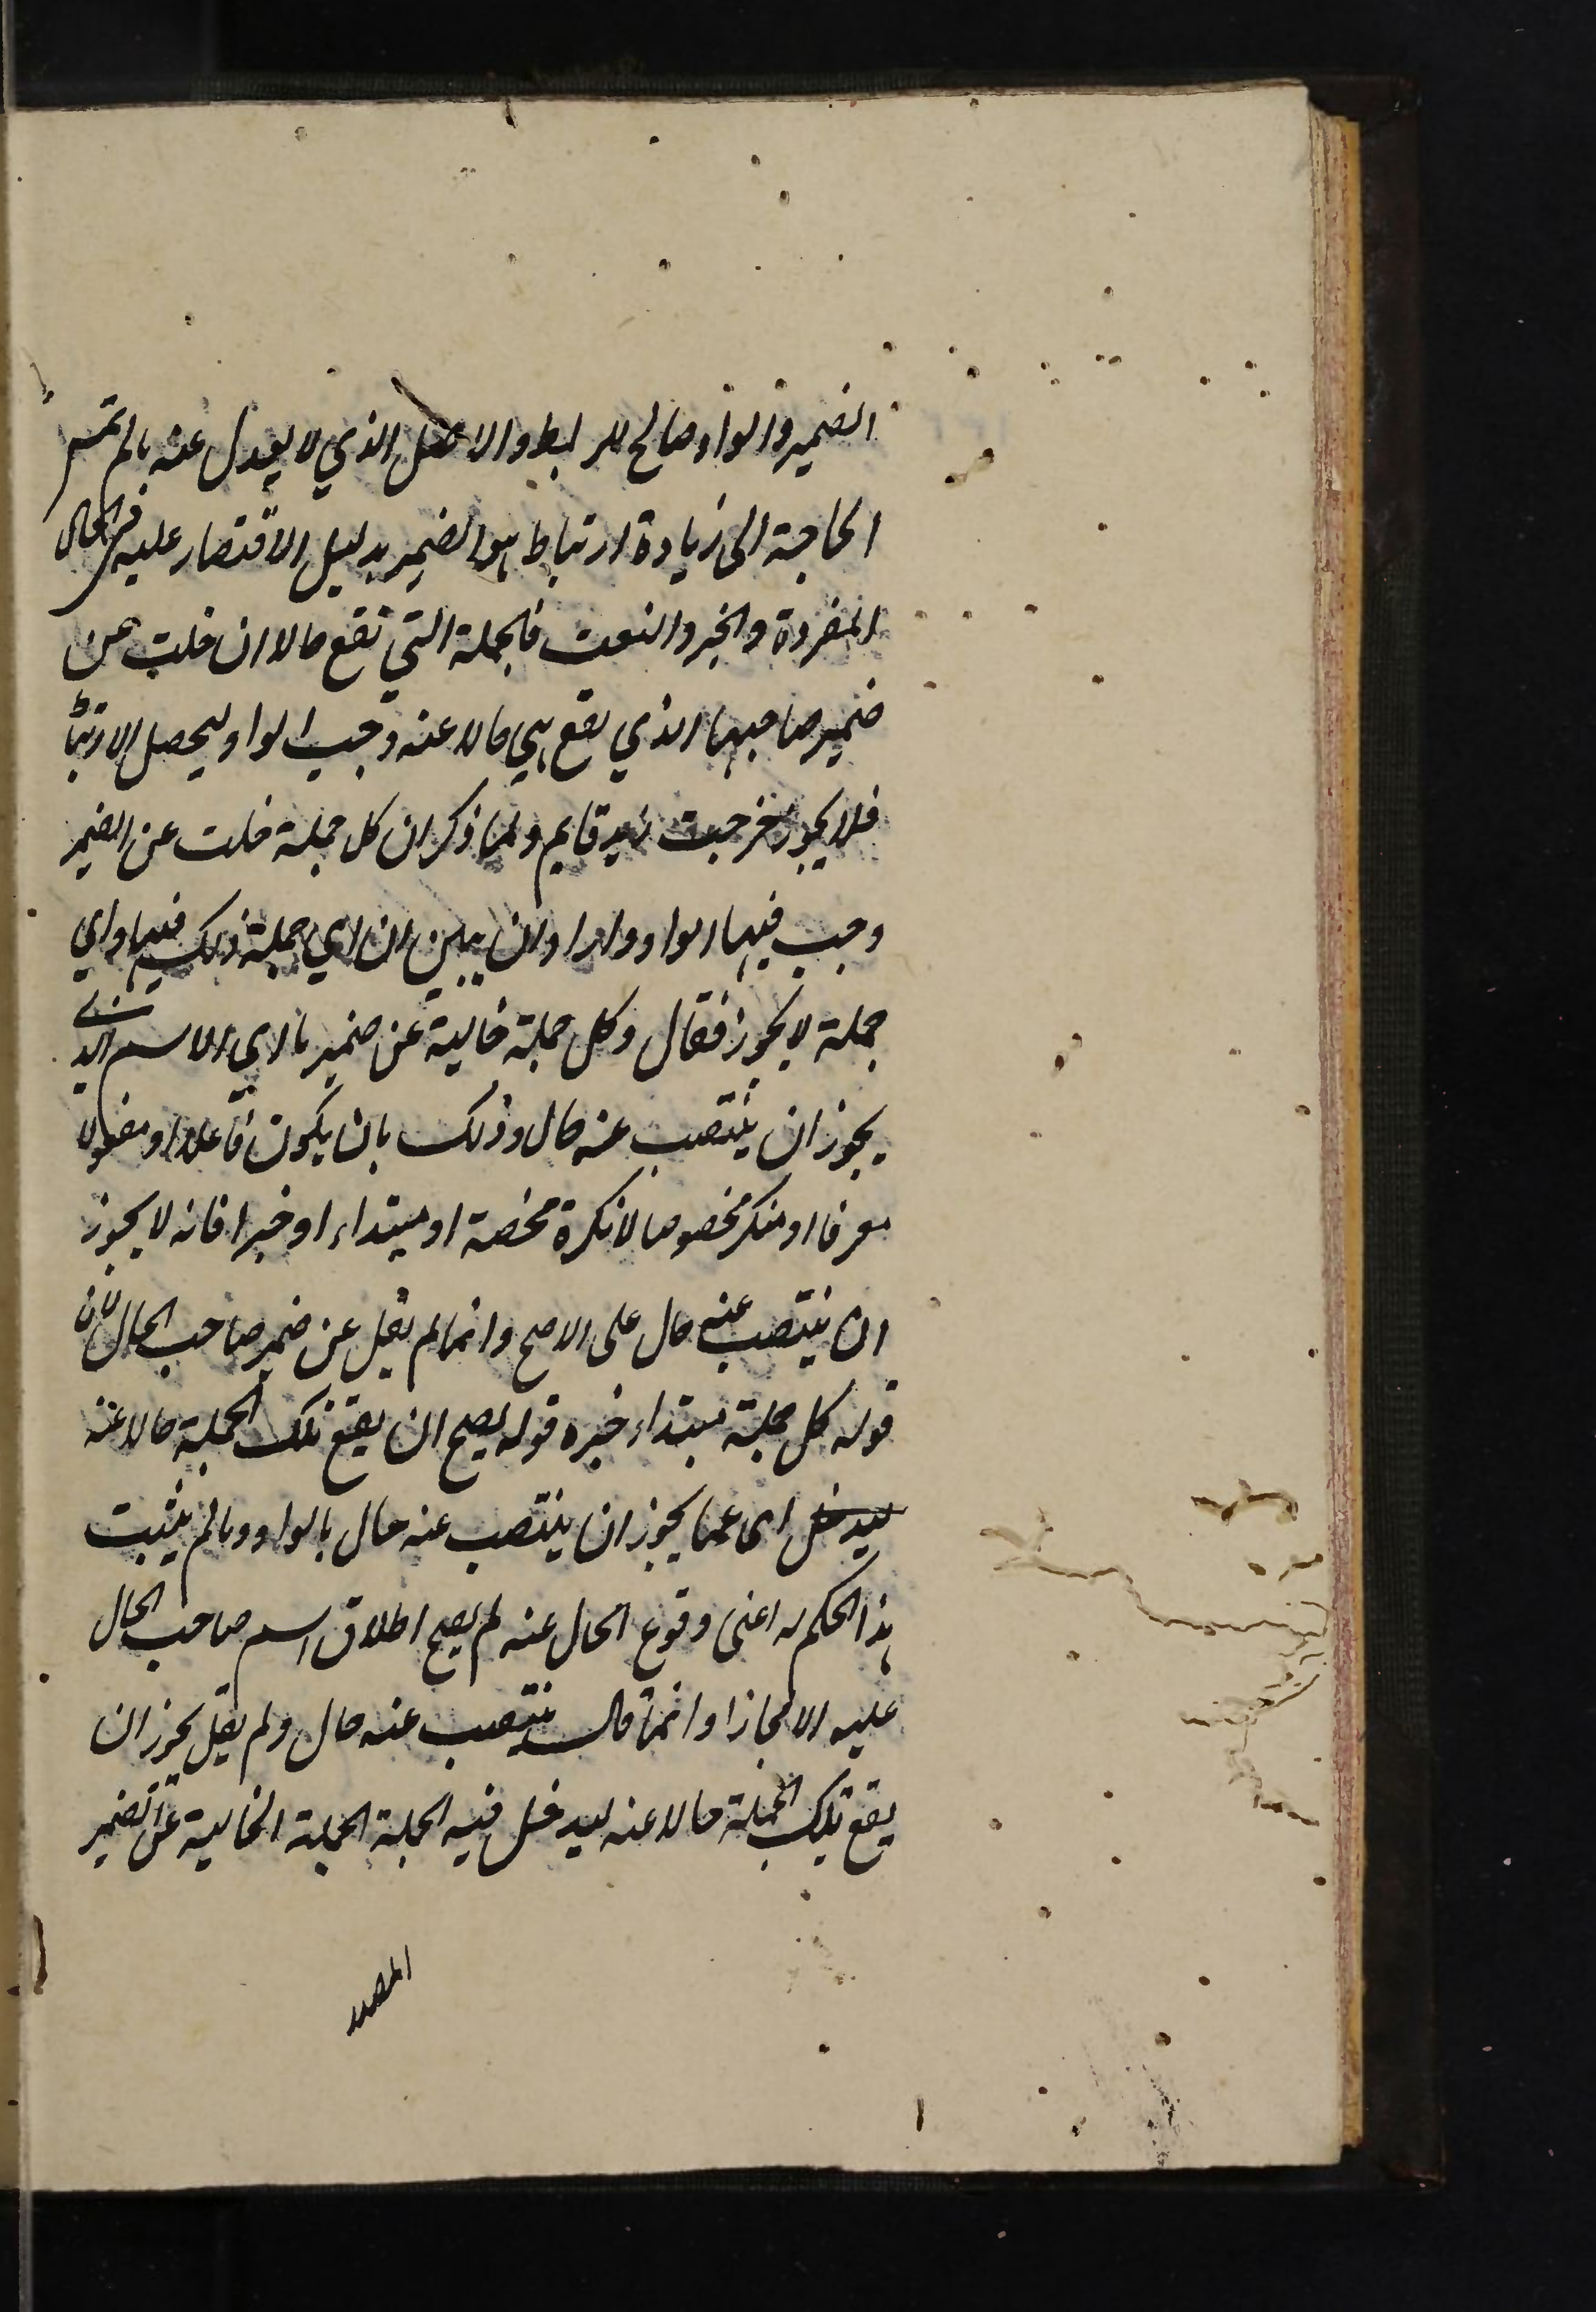 الضمير والواو صالح للربط والاصل الذي لا يعدل عنه ما لم تمس
الحاجة الى زيادة ارتباط هو الضمير بدليل الاقتصار عليه في الحال
المفردة والخبر والنعت فالجملة التي تقع حالا ان خلت عن
ضمير صاحبها الذي يقع هي حالا عنه وجب الواو ليحصل الارتبا
فلا يجوز خرجت زيد قايم ولما ذكر ان كل جملة خلت عن الضمير
وجب فيها الواو واراد ان يبين ان اي جملة ذلك فيها واي
جملة لا يجوز فقال وكل جملة خالية عن ضمير ما اى الاسم الذي
يجوز ان ينتصب عنه حال وذلك بان يكون فاعلا او مفعولا
معرفا او منكر مخصوصا لا نكرة محضة او مبتداء او خبرا فانه لا يجوز
ان ينتصب عنه حال على الاصح وانما لم يقل عن ضمير صاحب الحال لان
قوله كل جملة مبتداء خبره قوله يصح ان يقع تلك الجملة حالا عنه
ليدخل اى عما يجوز ان ينتصب عنه حال بالواو وما لم يثبت
هذا الحكم له اعنى وقوع الحال عنه لم يصح اطلاق اسم صاحب الحال
عليه الا مجازا وانما قال ينتصب عنه حال ولم يقل يجوز ان
يقع تلك الجملة حالا عنه ليدخل فيه الجملة الجملة الخالية عن الضمير
المصدر